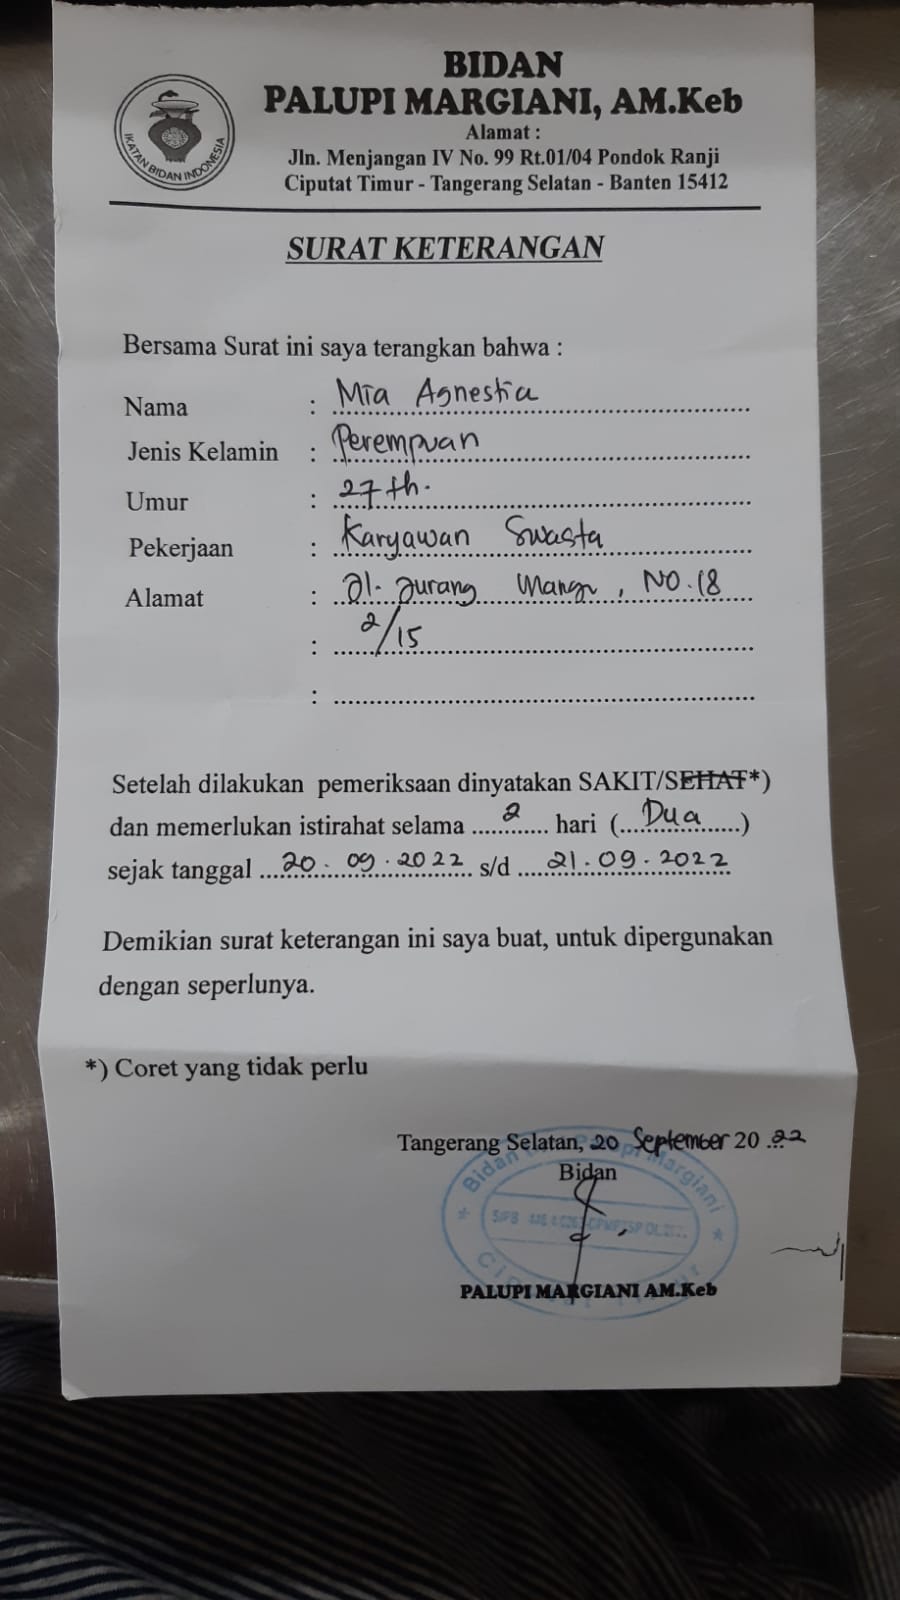 BIDAN
PALUPI MARGIANI, AM.Keb
Alamat :
Jln. Menjangan IV No. 99 Rt.01/04 Pondok Ranji
Ciputat Timur - Tangerang Selatan - Banten 15412
IKATAN BIDAN INDONESIA
SURAT KETERANGAN
Bersama Surat ini saya terangkan bahwa :
Nama : Mia Agnestia
Jenis Kelamin : Perempuan
Umur : 27 th.
Pekerjaan : Karyawan Swasta
Alamat : Jl. Jurang Mangu, NO. 18
: 2/15
:
Setelah dilakukan pemeriksaan dinyatakan SAKIT/SEHAT*)
dan memerlukan istirahat selama 2 hari (Dua)
sejak tanggal 20.09.2022 s/d 21.09.2022
Demikian surat keterangan ini saya buat, untuk dipergunakan
dengan seperlunya.
*) Coret yang tidak perlu
Tangerang Selatan, 20 September 2022
Bidan
PALUPI MARGIANI AM.Keb